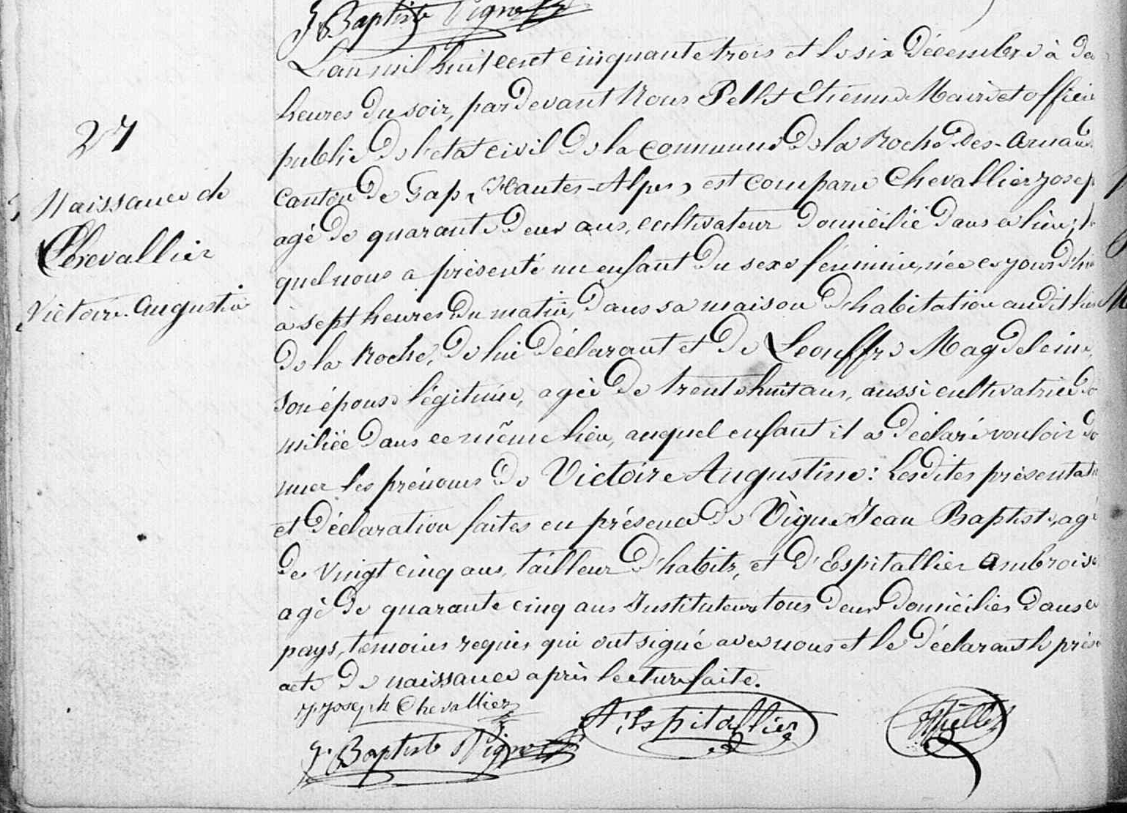 J. Baptiste Vigne
L'an mil huit cent cinquante trois et le six Décembre à de
heures du soir, pardevant Nous Pellet Etienne Maire et officier
public de l'état civil de la commune de la Roche-des-Arnauds
canton de Gap, (Hautes-Alpes) est comparu Chevallier Josep
agé de quarante deux ans, cultivateur domicilié dans ce lieu; le
quel nous a présenté un enfant du sexe féminin, née ce jourd'hui
a sept heures du matin, dans sa maison d'habitation audit lieu
de la Roche, de lui déclarant et de Leouffre Magdeleine,
son épouse légitime, agée de trente huit ans, aussi cultivatrice do
miliée dans ce même lieu, auquel enfant il a déclaré vouloir do
nner les prénoms de Victoire Augustine: Lesdites présentati
et déclaration faites en présence de Vigne Jean Baptiste agé
de vingt cinq ans, tailleur d'habits, et d'Espitallier Ambroise
agé de quarante cinq ans Instituteur tous deux domiciliés dans ce
pays, témoins requis qui ont signé avec nous et le déclarant le prése
acte de naissance après lecture faite.
27
Naissance de
Chevallier
Victoire Augustin
Joseph Chevallier
A. Espitallier
Pellet
J. Baptiste Vigne